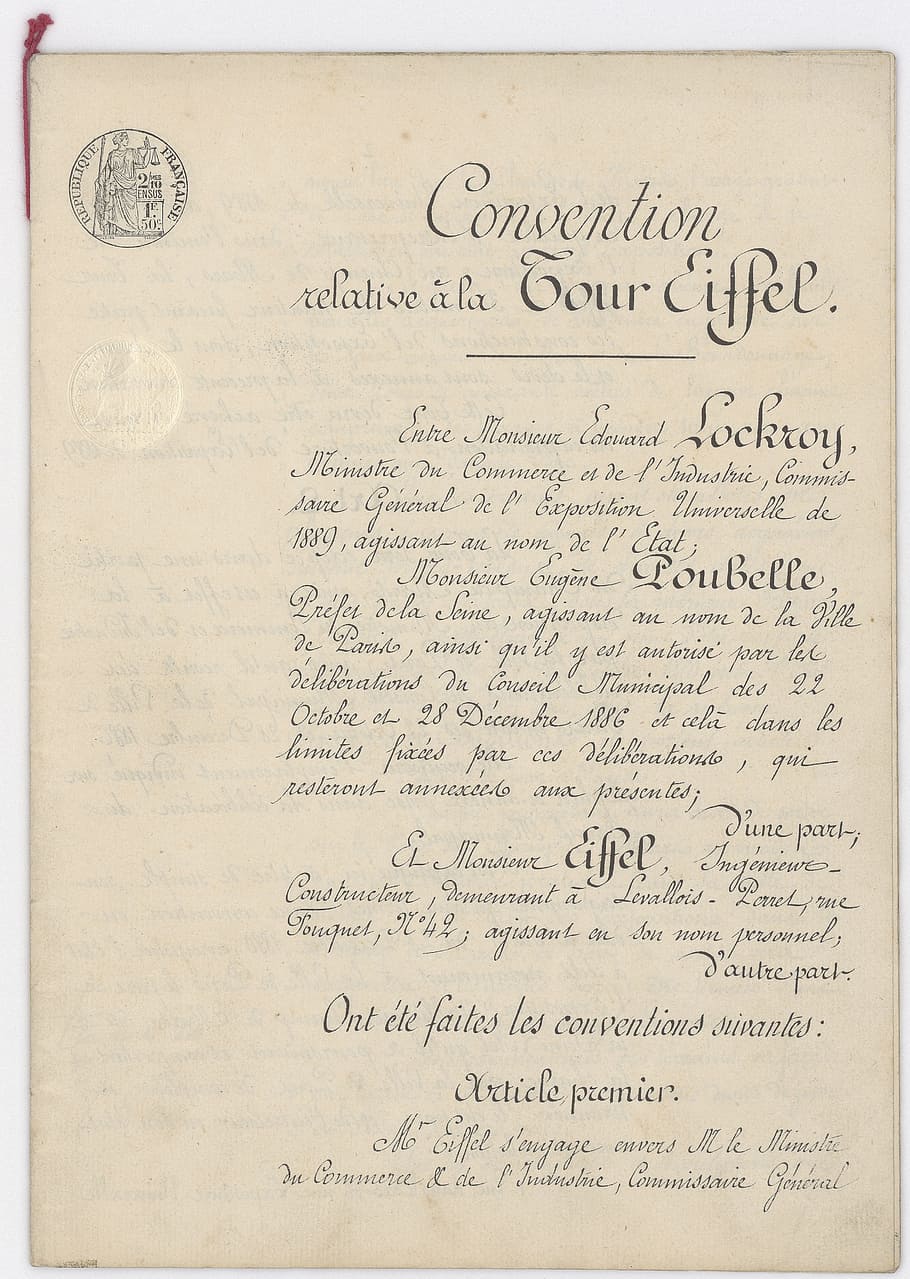 RÉPUBLIQUE FRANÇAISE
2/10
EN SUS
1F.
50c
Convention
relative à la Tour Eiffel.
Entre Monsieur Edouard Lockroy,
Ministre du Commerce et de l'Industrie, Commis-
saire Général de l'Exposition Universelle de
1889, agissant au nom de l'Etat;
Monsieur Eugène Poubelle,
Préfet de la Seine, agissant au nom de la Ville
de Paris, ainsi qu'il y est autorisé par les
délibérations du Conseil Municipal des 22
Octobre et 28 Décembre 1886 et celà dans les
limites fixées par ces délibérations, qui
resteront annexées aux présentes;
d'une part;
Et Monsieur Eiffel, Ingénieur-
Constructeur, demeurant à Levallois-Perret, rue
Fouquet, No 42; agissant en son nom personnel;
d'autre part.
Ont été faites les conventions suivantes:
Article premier.
Mr Eiffel s'engage envers M le Ministre
du Commerce & de l'Industrie, Commissaire Général